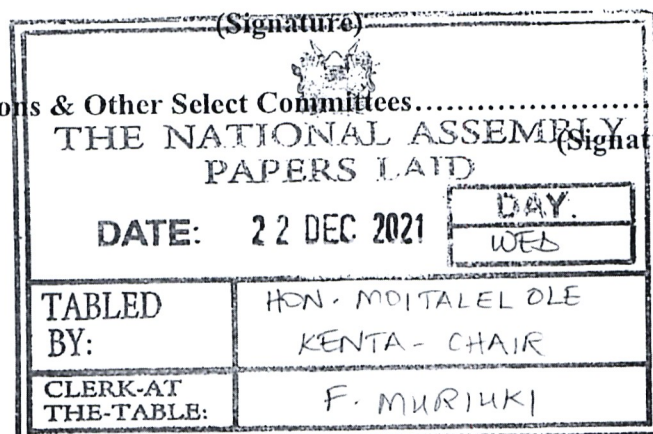 (Signature)
ons & Other Select Committees........................
(Signat
THE NATIONAL ASSEMBLY
PAPERS LAID
DATE: 22 DEC 2021
DAY.
WED
TABLED BY:
HON. MOITALEL OLE
KENTA - CHAIR
CLERK-AT THE-TABLE:
F. MURIUKI